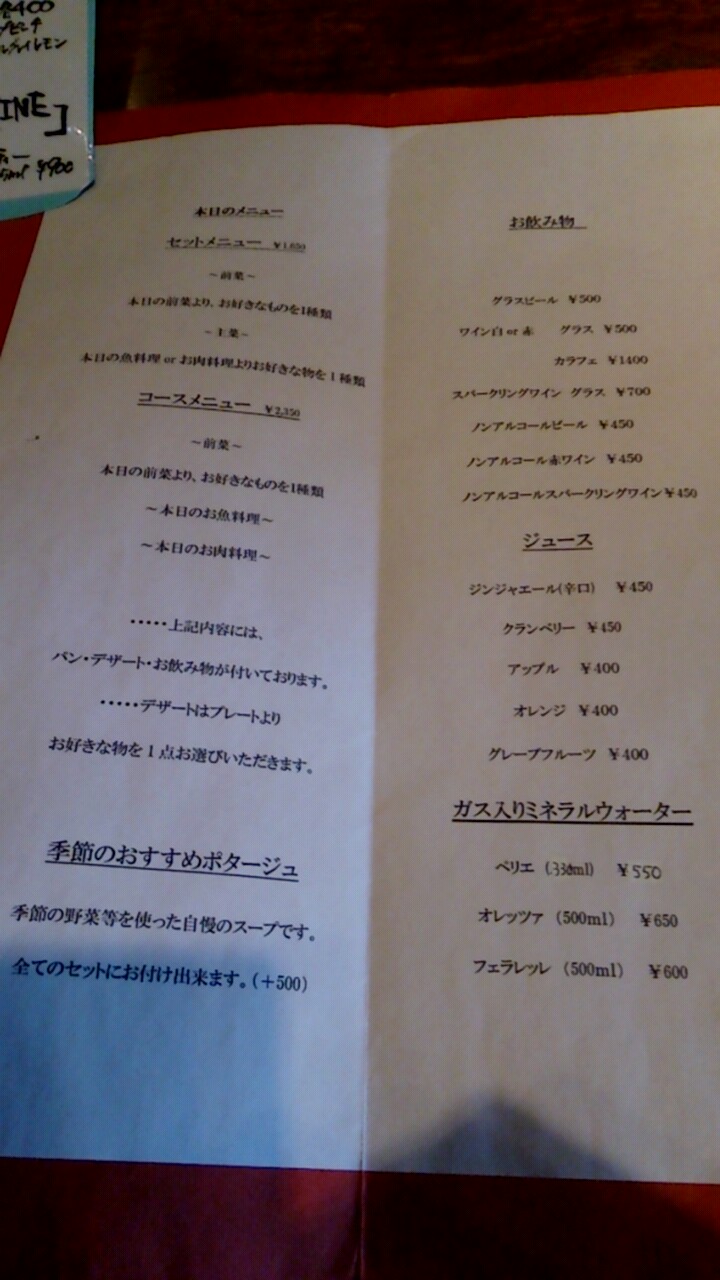 ¥400
INE]
ml ¥900
本日のメニュー
セットメニュー ¥1,650
~前菜~
本日の前菜より、お好きなものを1種類
~主菜~
本日の魚料理 or お肉料理よりお好きな物を1種類
コースメニュー ¥2,350
~前菜~
本日の前菜より、お好きなものを1種類
~本日のお魚料理~
~本日のお肉料理~
・・・・・上記内容には、
パン・デザート・お飲み物が付いております。
・・・・・デザートはプレートより
お好きな物を1点お選びいただきます。
季節のおすすめポタージュ
季節の野菜等を使った自慢のスープです。
全てのセットにお付け出来ます。(+500)
お飲み物
グラスビール ¥500
ワイン白 or 赤 グラス ¥500
カラフェ ¥1400
スパークリングワイン グラス ¥700
ノンアルコールビール ¥450
ノンアルコール赤ワイン ¥450
ノンアルコールスパークリングワイン¥450
ジュース
ジンジャエール(辛口) ¥450
クランベリー ¥450
アップル ¥400
オレンジ ¥400
グレープフルーツ ¥400
ガス入りミネラルウォーター
ペリエ (330ml) ¥550
オレッツァ (500ml) ¥650
フェラレッレ (500ml) ¥600